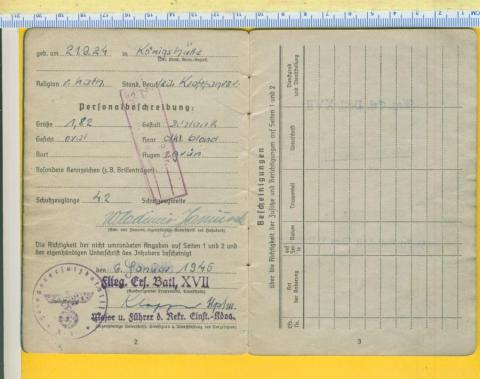 geb. am 21.9.24 in Königshütte
(Ort, Kreis, Verw.-Bezirk)
Religion r. kath Stand, Beruf
Personalbeschreibung:
Größe 1,82 Gestalt schlank
Gesicht oval Haar dkl. blond
Bart Augen grün
Besondere Kennzeichen (z.B. Brillenträger):
Schuhzeuglänge 42 Schuhzeugweite
(Vor- und Zuname, eigenhändige Unterschrift des Inhabers)
Die Richtigkeit der nicht umrandeten Angaben auf Seiten 1 und 2 und
der eigenhändigen Unterschrift des Inhabers bescheinigt
den 6. Januar 1945
Flieg. Ers. Batl. XVII
Major u. Führer d. Rekr. Einst.-Kdos.
2
Bescheinigungen
über die Richtigkeit der Zusätze und Berichtigungen auf Seiten 1 und 2
Lfd. Nr.
Art der Änderung
auf Seite
Datum
Truppenteil
Unterschrift
Dienstgrad und Dienststellung
3